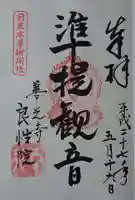 奉拝
平成二十七年
五月十六日
準提観音
善光寺
良性院